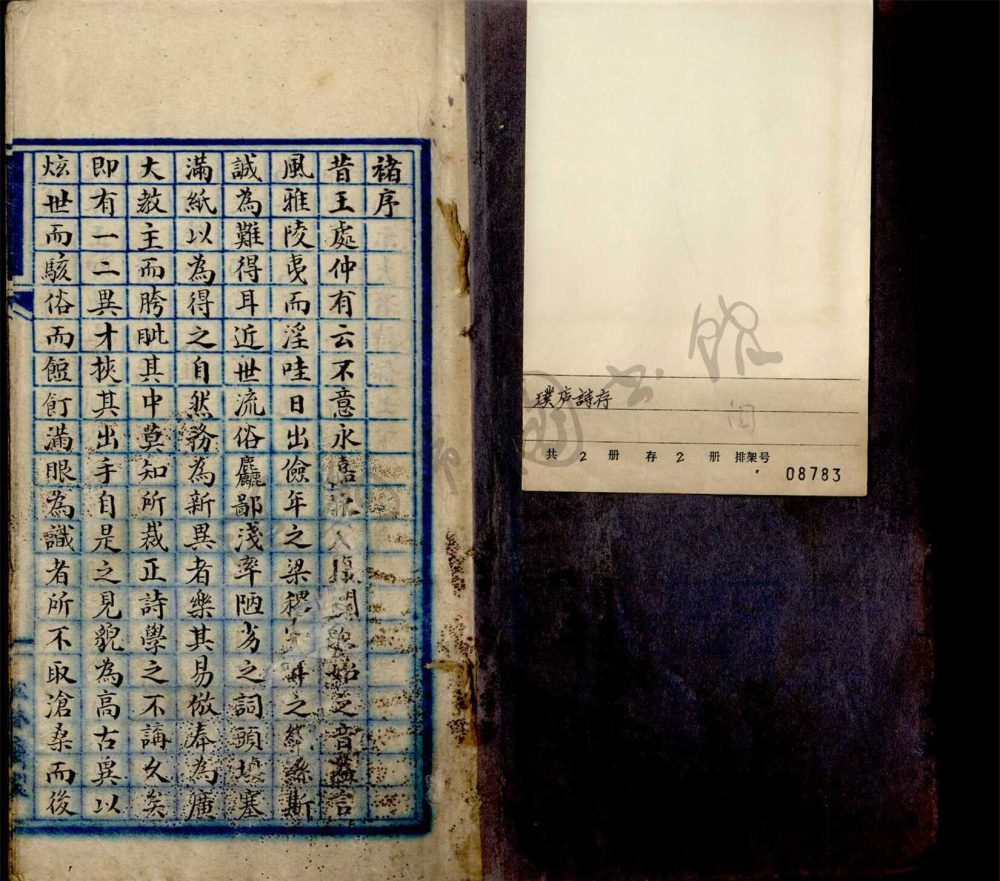 褚序
昔王處仲有云不意永嘉人復聞始之音蓋言
風雅陵夷而淫哇日出儉年之梁稷之斯
誠為難得耳近世流俗麤鄙淺率陋劣之詞頭塞
滿紙以為得之自然務為新異者樂其易倣奉為廣
大教主而胯眦其中莫知所裁正詩學之不講久矣
即有一二異才挾其出手自是之見貌為高古以
炫世而駭俗而餖飣滿眼為識者所不取滄桑而後
璞庐詩存
共 2 册 存 2 册 排架号
08783